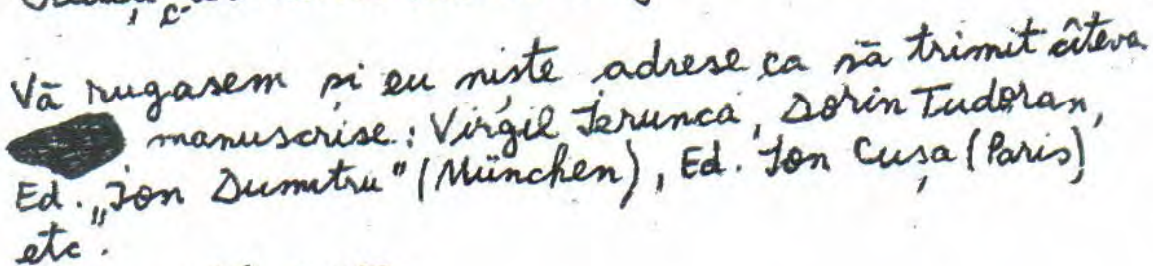 Vă rugasem și eu niște adrese ca să trimit câteva
manuscrise: Virgil Ierunca, Dorin Tudoran,
Ed. „Ion Dumitru" (München), Ed. Ion Cușa (Paris)
etc.